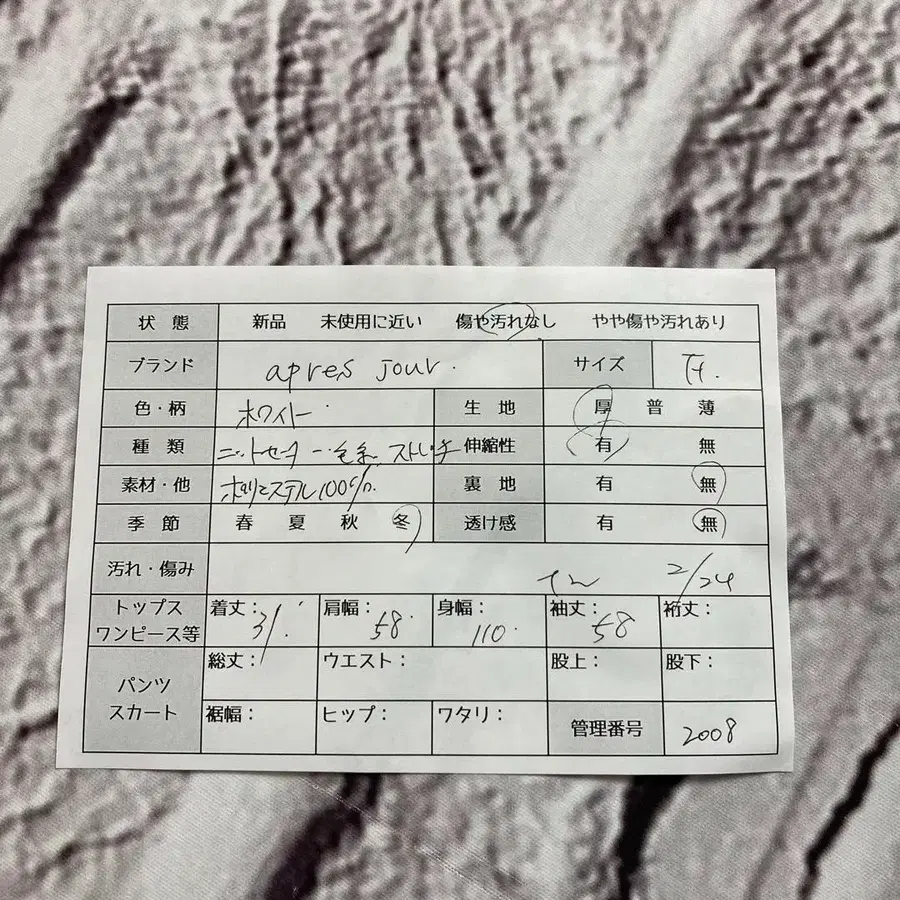 状 態 新品 未使用に近い 傷や汚れなし やや傷や汚れあり
ブランド apres jour. サイズ F.
色・柄 ホワイト 生 地 厚 普 薄
種 類 ニットセーター 毛糸 ストレッチ 伸縮性 有 無
素材・他 ポリエステル100% 裏 地 有 無
季 節 春 夏 秋 冬 透け感 有 無
汚れ・傷み 2/24
トップス ワンピース等 着丈: 31. 肩幅: 58. 身幅: 110. 袖丈: 58 裄丈:
パンツ スカート 総丈: ウエスト: 股上: 股下:
裾幅: ヒップ: ワタリ: 管理番号 2008